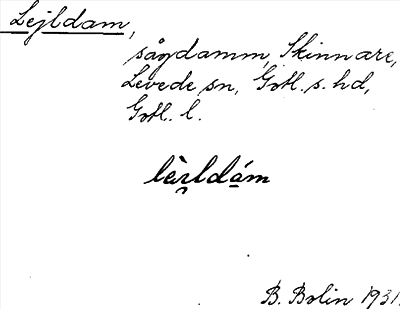 Lejldam,
sågdamm, Skinnare,
Levede sn, Gotl. s. hd,
Gotl. l.
lèıldám
B. Bolin 1931.